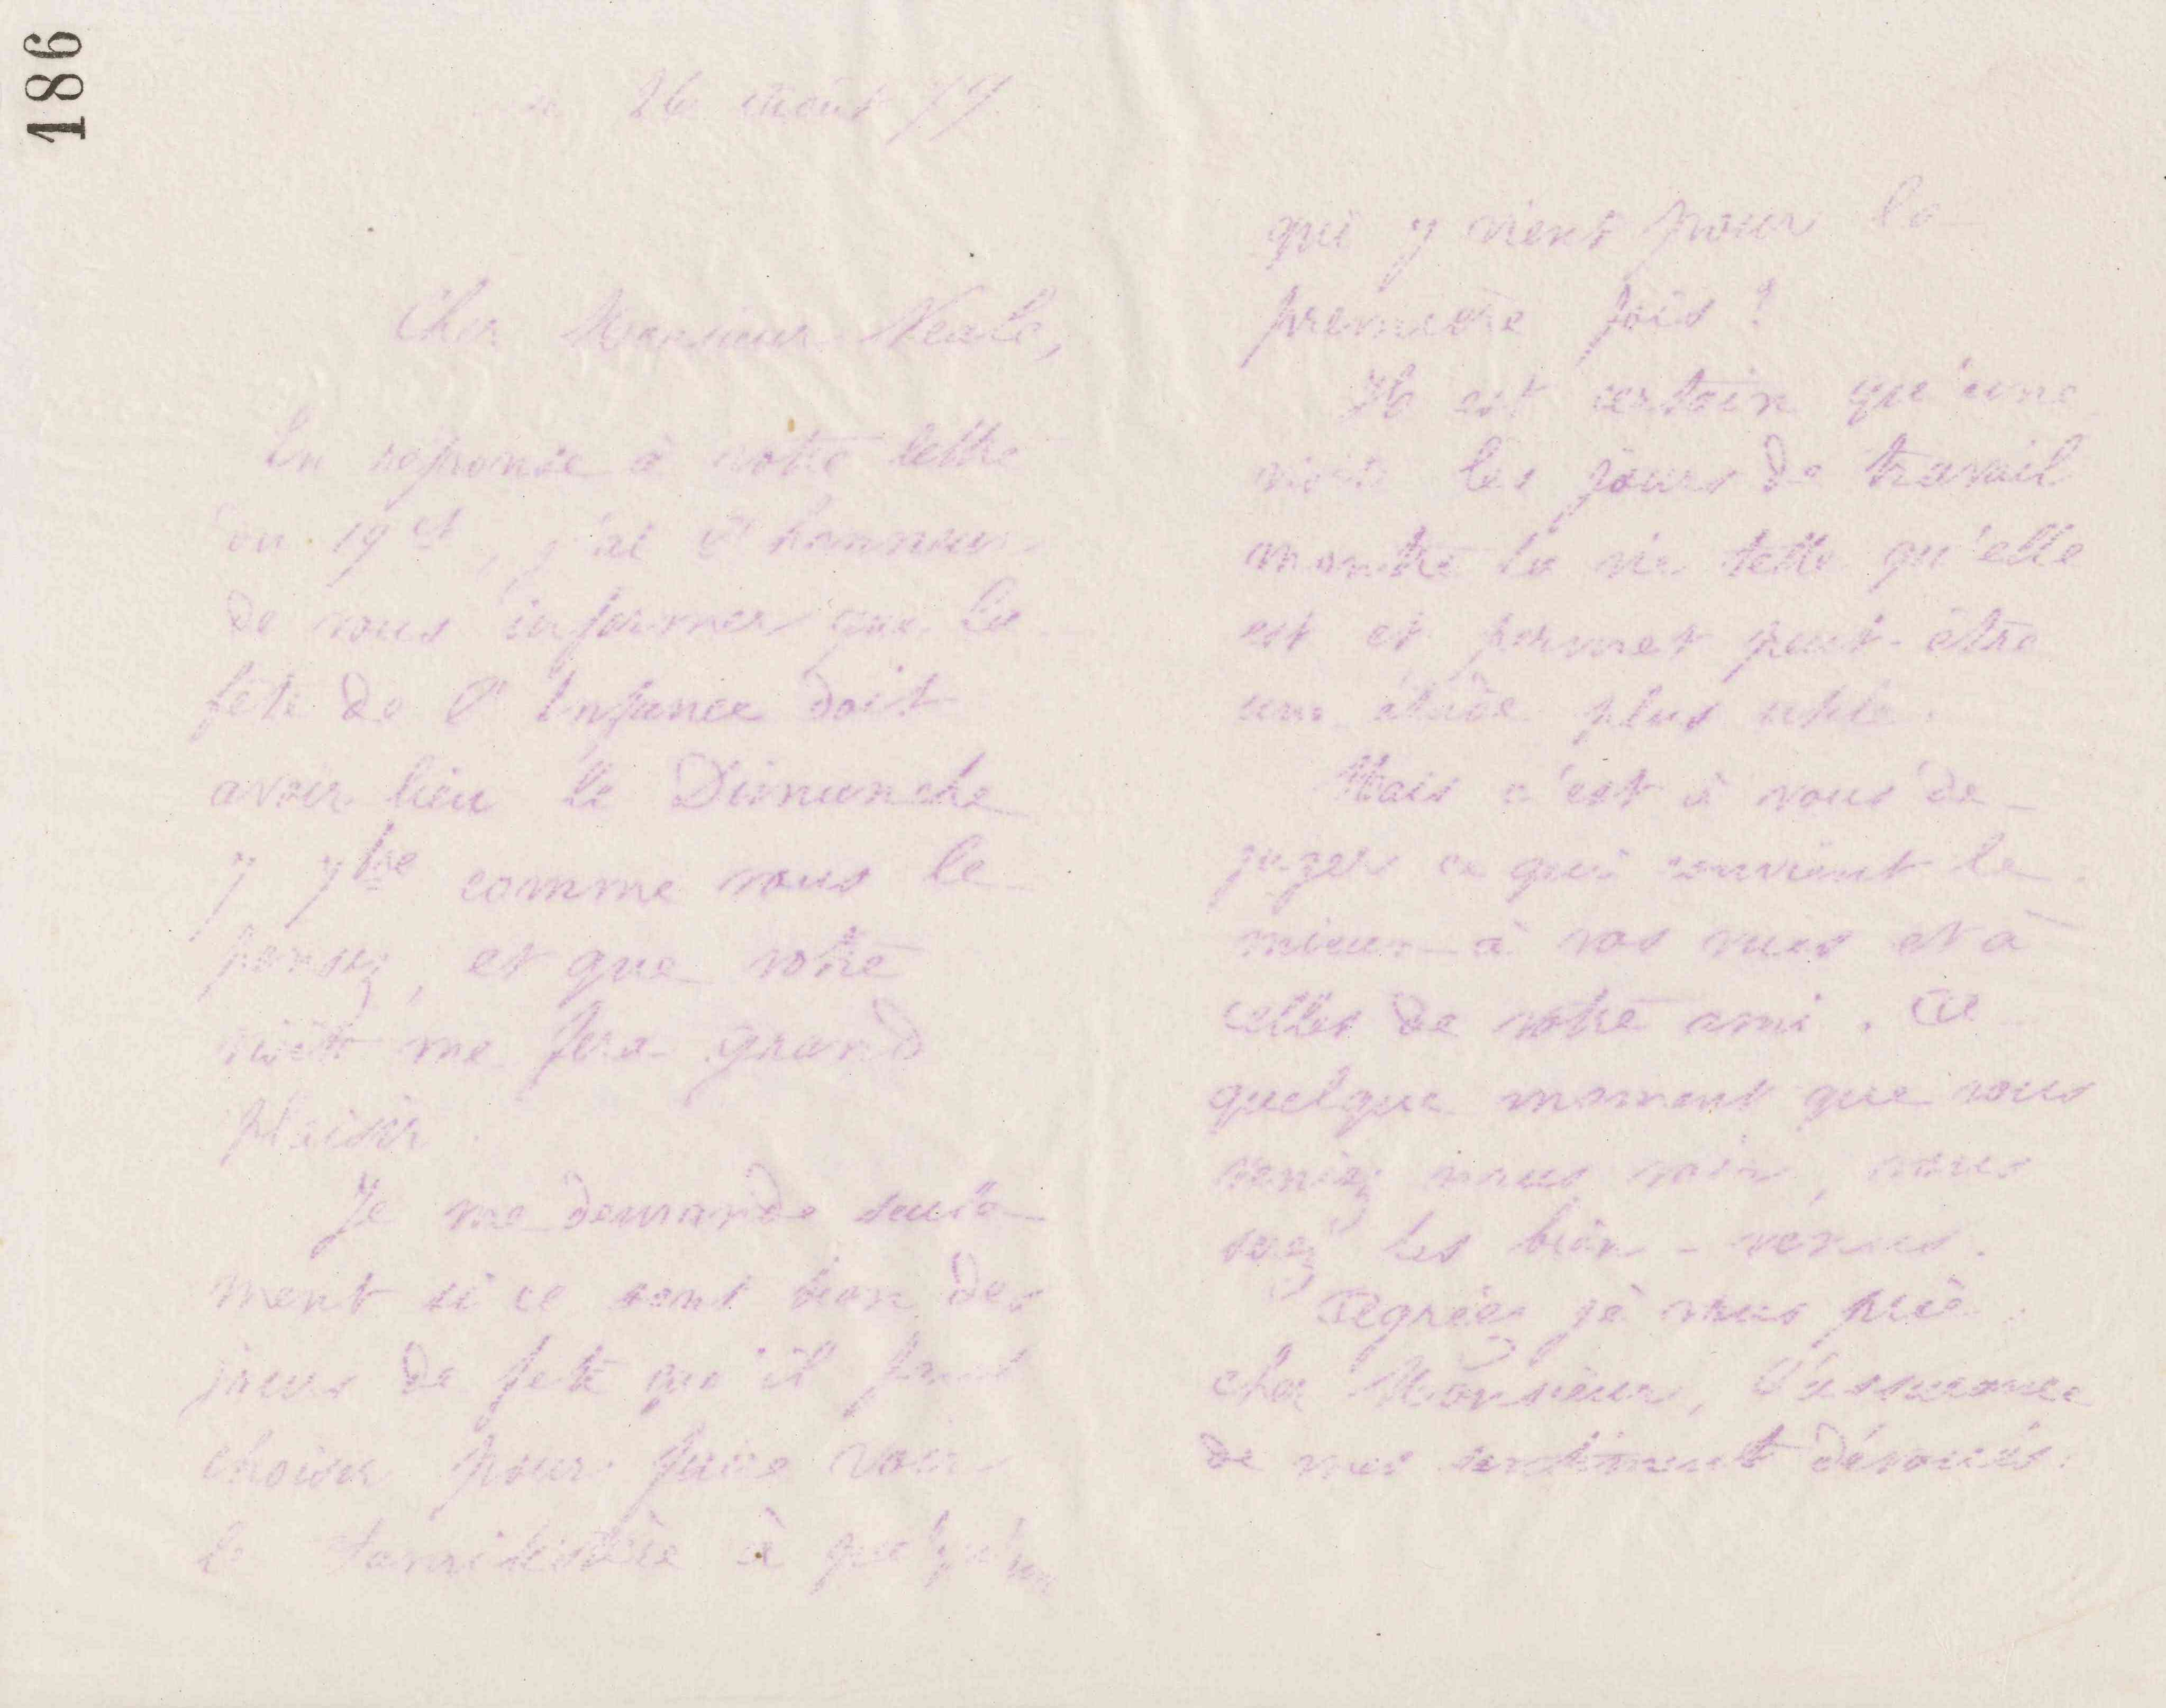 186
26 Août 79
Cher Monsieur Neale,
En réponse à votre lettre
du 19 ct, j'ai l'honneur
de vous informer que la
fête de l'Enfance doit
avoir lieu le Dimanche
7 7bre comme vous le
pensez, et que votre
visite me fera grand
plaisir.
Je me demande seule-
ment si ce sont bien des
jours de fête qu'il faut
choisir pour faire voir
le familistère à quelqu'un
qui y vient pour la
première fois ?
Il est certain qu'une
visite les jours de travail
montre la vie telle qu'elle
est et permet peut-être
une étude plus utile.
Mais c'est à vous de
juger ce qui convient le
mieux à vos vues et à
celles de votre ami. A
quelque moment que vous
veniez nous voir, vous
serez les bien-venus.
Agréez je vous prie
cher Monsieur, l'assurance
de mes sentiments dévoués.